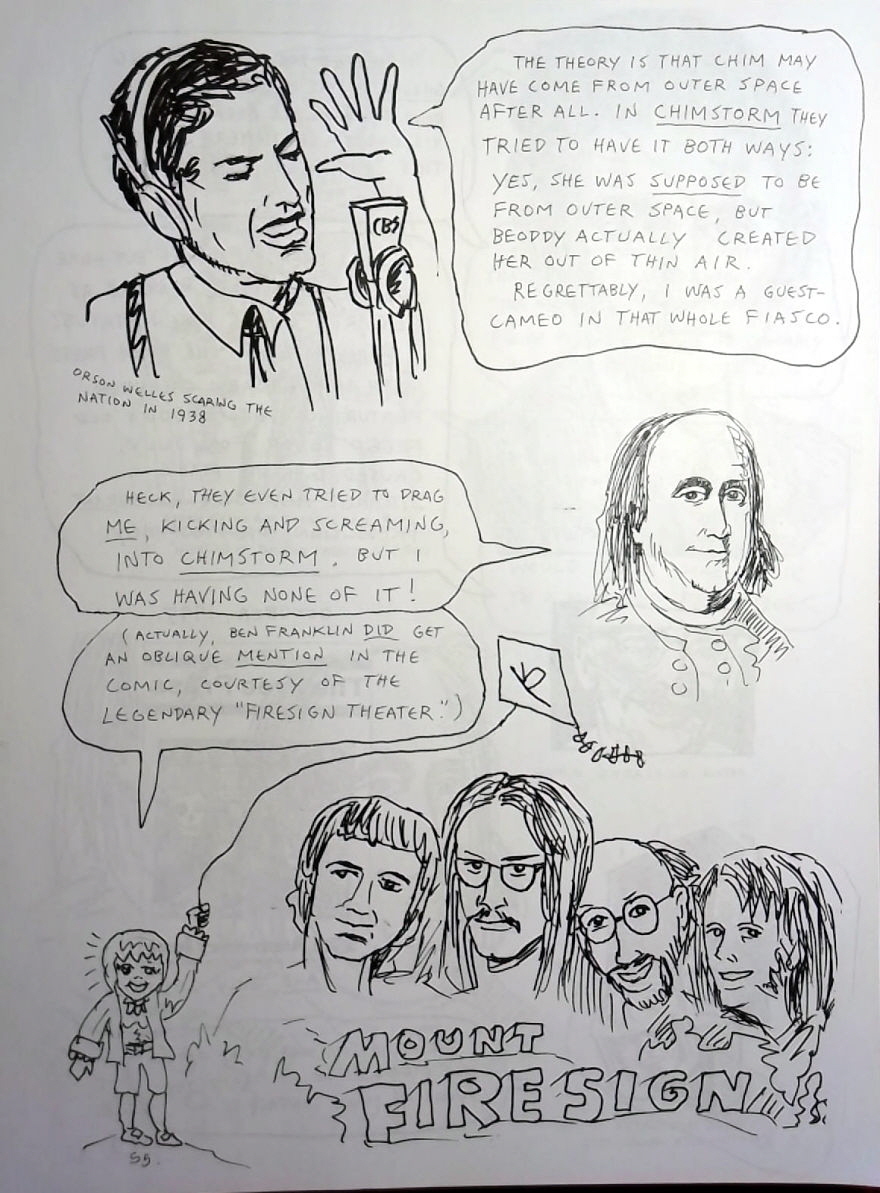 THE THEORY IS THAT CHIM MAY
HAVE COME FROM OUTER SPACE
AFTER ALL. IN CHIMSTORM THEY
TRIED TO HAVE IT BOTH WAYS:
YES, SHE WAS SUPPOSED TO BE
FROM OUTER SPACE, BUT
BEODDY ACTUALLY CREATED
HER OUT OF THIN AIR.
REGRETTABLY, I WAS A GUEST-
CAMEO IN THAT WHOLE FIASCO.
CBS
ORSON WELLES SCARING THE
NATION IN 1938
HECK, THEY EVEN TRIED TO DRAG
ME, KICKING AND SCREAMING,
INTO CHIMSTORM. BUT I
WAS HAVING NONE OF IT!
(ACTUALLY, BEN FRANKLIN DID GET
AN OBLIQUE MENTION IN THE
COMIC, COURTESY OF THE
LEGENDARY "FIRESIGN THEATER.")
MOUNT
FIRESIGN